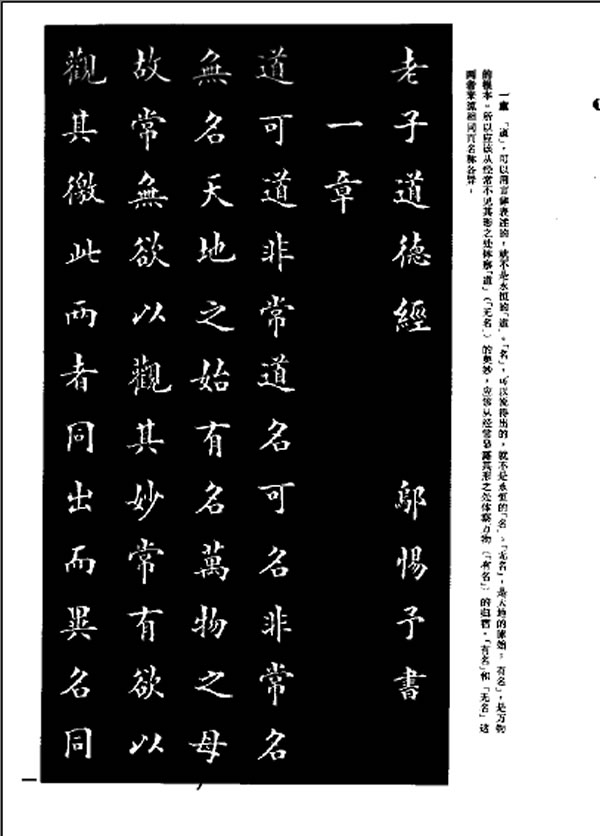 一章 「道」，可以用言辞表述的，就不是永恒的「道」。「名」，可以说得出的，就不是永恒的「名」。「无名」，是天地的原始；「有名」，是万物
的根本。所以应该从经常不见其形之处体察「道」（「无名」）的奥妙，应该从经常显露其形之处体察万物（「有名」）的归宿。「有名」和「无名」这
两者来源相同而名称各异。
老子道德經 鄔惕予書
一章
道可道非常道名可名非常名
無名天地之始有名萬物之母
故常無欲以觀其妙常有欲以
觀其徼此兩者同出而異名同
一